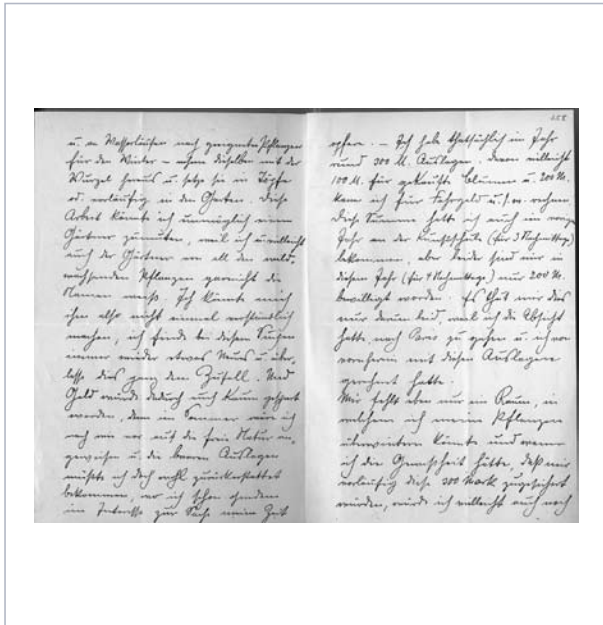 u. an Wasserläufen nach geeigneten Pflanzen
für den Winter – nehme dieselben mit der
Wurzel heraus u. setze sie in Töpfe
od. vorläufig in den Garten. Diese
Arbeit könnte ich unmöglich einem
Gärtner zumuten, weil ich u. vielleicht
auch der Gärtner von all den wild-
wachsenden Pflanzen garnicht die
Namen weiß. Ich könnte mich
ihm also nicht einmal verständlich
machen, ich finde bei diesem Suchen
immer wieder etwas Neues u. über-
lasse dies ganz dem Zufall. Und
Geld würde dadurch auch kaum gespart
werden, denn im Sommer wäre ich
nach wie vor auf die freie Natur an-
gewiesen u. die baaren Auslagen
müßte ich doch wohl zurückerstattet
bekommen, wo ich schon ohnedem
im Interesse zur Sache meine Zeit
opfere. – Ich habe thatsächlich im Jahr
rund 300 M. Auslagen, davon vielleicht
100 M. für gekaufte Blumen u. 200 M.
kann ich für Fahrgeld u.s.w. rechnen.
Diese Summe hatte ich auch im vorigen
Jahr an der Kunstschule (für 3 Nachmittage)
bekommen, aber leider sind mir in
diesem Jahr (für 4 Nachmittage) nur 200 M.
bewilligt worden. Es thut mir dies
nur darum leid, weil ich die Absicht
hatte, nach Paris zu gehen u. ich von
vornherein mit diesen Auslagen
gerechnet hatte.
Mir fehlt eben nur ein Raum, in
welchem ich meine Pflanzen
überwintern könnte und wenn
ich die Gewissheit hätte, daß mir
vorläufig diese 300 Mark zugesichert
würden, würde ich vielleicht auch noch